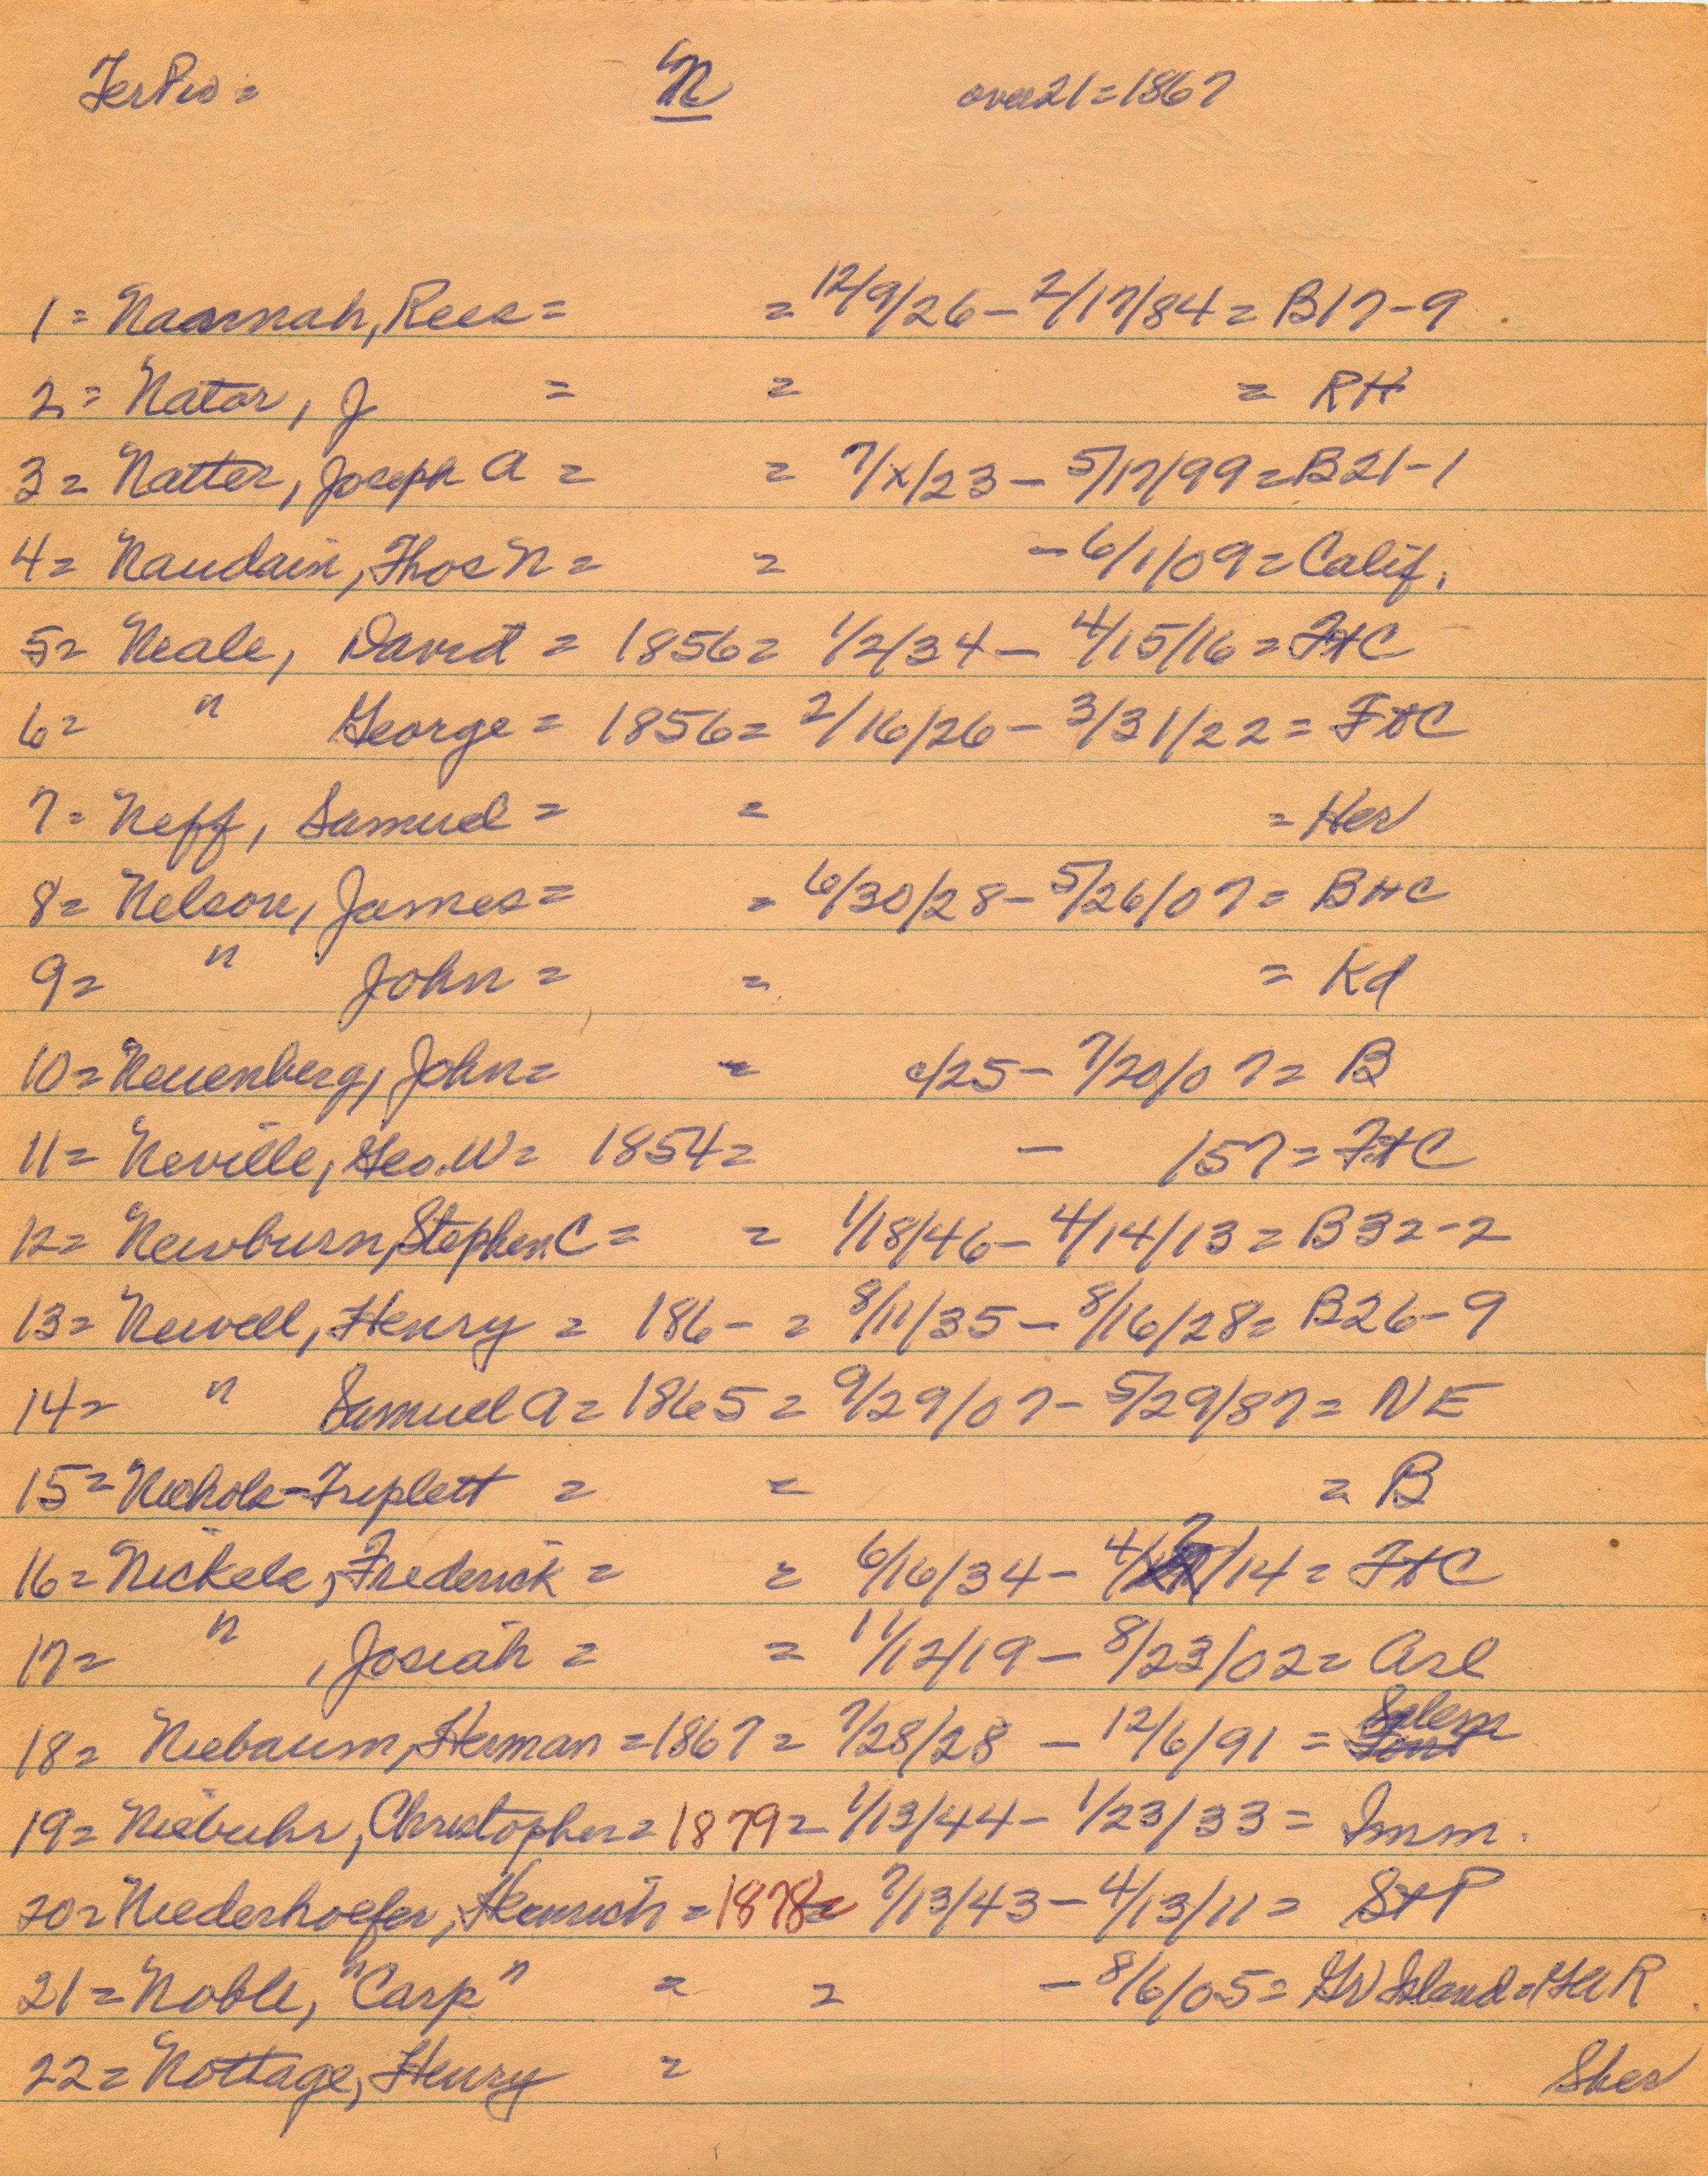 TerPio = N over21=1867
1= Naomah, Rees = = 12/9/26 - 2/17/84 = B17-9
2= Nator, J = = = RH
3= Natter, Joseph A = = 7/x/23 - 5/17/99 = B21-1
4= Naudain, Thos N = = - 6/1/09 = Calif.
5= Neale, David = 1856 = 1/2/34 - 4/15/16 = FtC
6= " George = 1856 = 2/16/26 - 3/31/22 = FtC
7= Neff, Samuel = = = Her
8= Nelson, James = = 6/30/28 - 5/26/07 = BHC
9= " John = = = Kd
10= Neuenberg, John = = c/25 - 7/20/07 = B
11= Neville, Geo. W = 1854 = - 157 = FtC
12= Newburn, Stephen C = = 1/18/46 - 4/14/13 = B32-2
13= Newell, Henry = 186- = 8/11/35 - 8/16/28 = B26-9
14= " Samuel A = 1865 = 9/29/07 - 5/29/87 = NE
15= Nichols-Triplett = = = B
16= Nickels, Frederick = = 6/16/34 - 4/7/14 = FtC
17= " , Josiah = = 11/12/19 - 8/23/02 = Arl
18= Niebaum, Herman = 1867 = 7/28/28 - 12/6/91 = Salem
19= Niebuhr, Christopher = 1879 = 1/13/44 - 1/23/33 = Imm.
20= Niederhoefer, Heinrich = 1878 = 7/13/43 - 4/13/11 = StP
21= Noble, "Carp" = = - 8/6/05 = Gr Island = GAR
22= Nottage, Henry = Sher